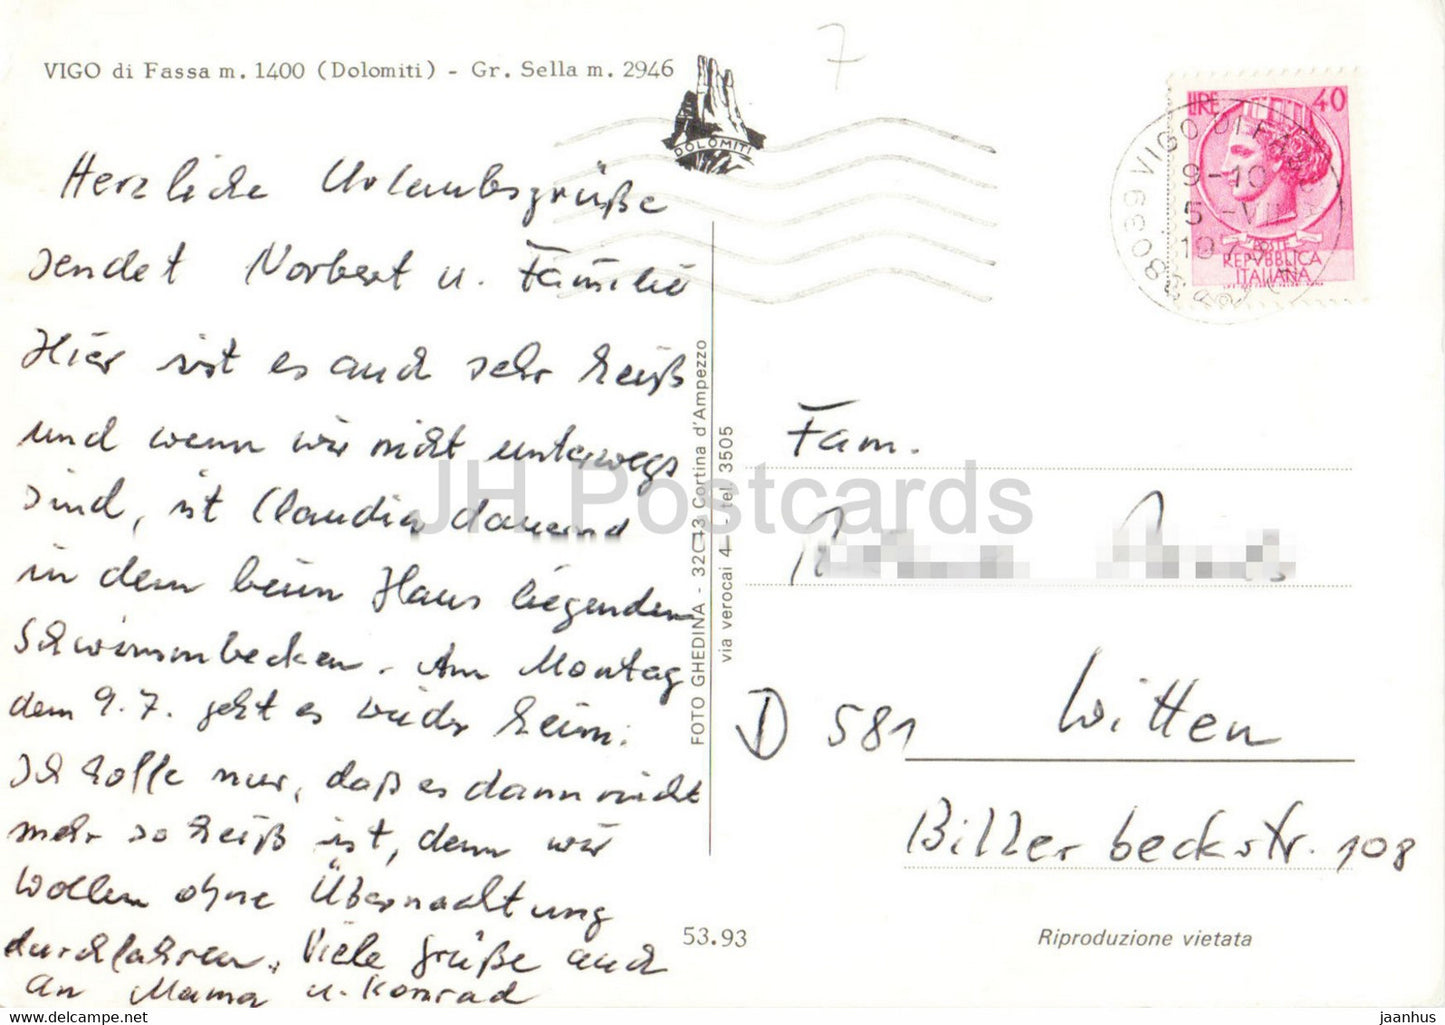 VIGO di Fassa m. 1400 (Dolomiti) - Gr. Sella m. 2946
7
DOLOMITI
LIRE 40
POSTE
REPVBBLICA
ITALIANA
38039 VIGO DI FASSA
9-10
5 -VII
197
Herzliche Urlaubsgrüße
sendet Norbert u. Familie
Hier ist es auch sehr heiß
und wenn wir nicht unterwegs
sind, ist Claudia dauernd
in dem beim Haus liegenden
Schwimmbecken. Am Montag
dem 9.7. geht es wieder heim.
Ich hoffe nur, daß es dann nicht
mehr so heiß ist, denn wir
wollen ohne Übernachtung
durchfahren. Viele Grüße auch
an Mama u. Konrad
FOTO GHEDINA - 32043 Cortina d'Ampezzo
via verocai 4 - tel 3505
JH Postcards
Fam.
D 581 Witten
Billerbeckstr. 108
53.93
Riproduzione vietata
jaanhus - https://www.ebay.com